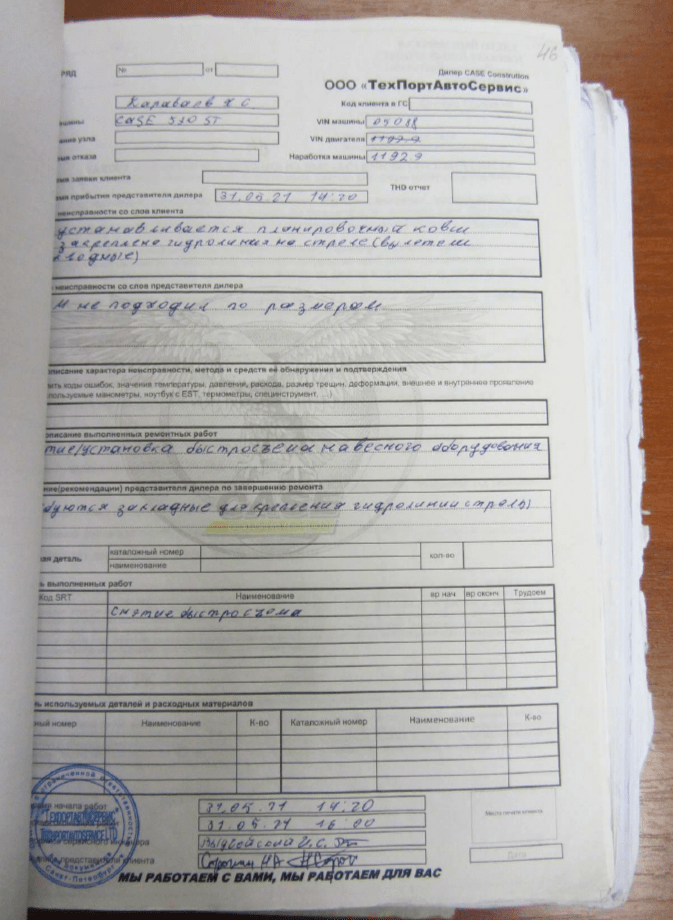 46
РЯД № от
Дилер CASE Constrution
ООО «ТехПортАвтоСервис»
Код клиента в ГС
CASE 570 ST
VIN машины 05088
VIN двигателя 11929
Наработка машины 11929
отказа
заявки клиента
THD отчет
прибытия представителя дилера 31.05.21 14:20
неисправности со слов клиента
устанавливается планировочный ковш
закреплена гидролиния на стреле (вылетели
неисправности со слов представителя дилера
не подходил по размерам
писание характера неисправности, метода и средств её обнаружения и подтверждения
ить коды ошибок, значение температуры, давления, расхода, размер трещин, деформации, внешнее и внутреннее проявление
пользуемые манометры, ноутбук с EST, термометры, специнструмент, ...)
описание выполненных ремонтных работ
тие/установка быстросъема навесного оборудования
ние(рекомендации) представителя дилера по завершению ремонта
буются закладные для крепления гидролинии стрелы)
ая деталь каталожный номер кол-во
наименование
ь выполненных работ
Код SRT Наименование вр нач вр оконч Трудоем
снятие быстросъема
нь используемых деталей и расходных материалов
ный номер Наименование К-во Каталожный номер Наименование К-во
начала работ 31.05.21 14:20
31.05.21 16:00
сервисного инженера
представителя клиента
Место печати клиента
ТЕХПОРТАВТОСЕРВИС
TECHPORTAUTOSERVICE LTD
Санкт-Петербург
МЫ РАБОТАЕМ С ВАМИ, МЫ РАБОТАЕМ ДЛЯ ВАС